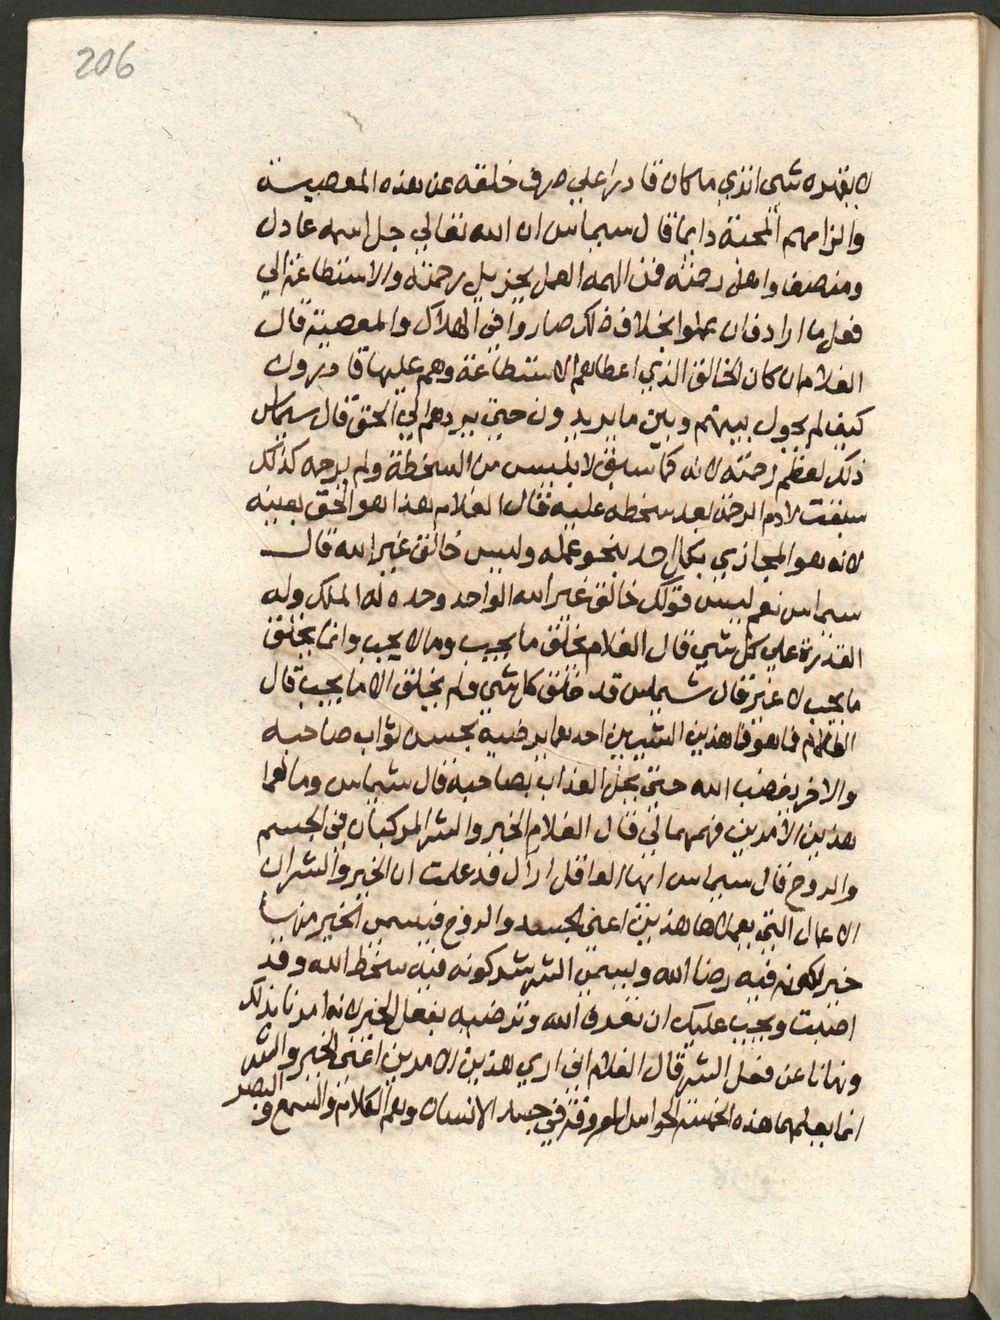 206
لا يقهره شي الذي ما كان قادرا علي صرف خلقه عن هذه المعصية
والزامهم المحنة دايما قال سيماس ان الله تعالي جل اسمه عادل
ومنصف واهل رحمته فمن الهمه العمل بجزيل رحمته والاستطاعة الي
فعل ما اراد فان عملوا بخلاف ذلك صاروا في الهلاك والمعصية قال
الغلام ان كان الخالق الذي اعطاهم الاستطاعة وهم عليها قادرون
كيف لم يحول بينهم وبين ما يريدون حتي يردهم الي الحق قال سيماس
ذلك لعظم رحمته لانه كما سبق لابليس من السخطة ولم يرحمه كذلك
سبقت لادم الرحمة بعد سخطه عليه فقال الغلام هذا هو الحق بعينه
لانه هو المجازي بكل احد بنحو عمله وليس خالق غير الله قال
سيماس نعم ليس قولك خالق غير الله الواحد وحده له الملك وله
القدرة علي كل شي قال الغلام خلق ما يجب وما لا يجب وانما يخلق
ما يجب لا غير قال شيماس قد خلق كل شي ولم يخلق الا ما يجب قال
الغلام فما هو هذين الشيين احدهما يرضيه بحسن ثواب صاحبه
والاخر يغضب الله حتي يحل العذاب بصاحبه قال شيماس وما هما
هذين الامرين فهمهما لي قال الغلام الخير والشر المركبان في الجسم
والروح قال سيماس ايها العاقل اراك قد علمت ان الخير والشر ان
الاعمال التي يعملاها هذين اعني الجسد والروح فيسمي الخير منها
خير لكونه فيه رضا الله ويسمي الشر شر كونه فيه سخط الله وقد
اصبت ويجب عليك ان تعرف الله وترضيه بفعل الخير لانه امرنا بذلك
ونهانا عن فعل الشر قال الغلام اني اري هذين الامرين اعني الخير والشر
انما يعملهما هذه الخمسة الحواس المعروفة في جسد الانسان وهم الكلام والسمع والبصر